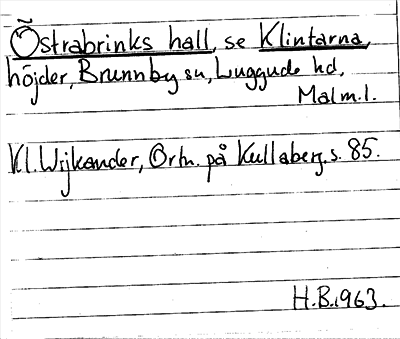 Östrabrinks hall, se Klintarna,
höjder, Brunnby sn, Luggude hd,
Malm.l.
Kl. Wijkander, Ortn. på Kullaberg, s. 85.
H.B. 1963.